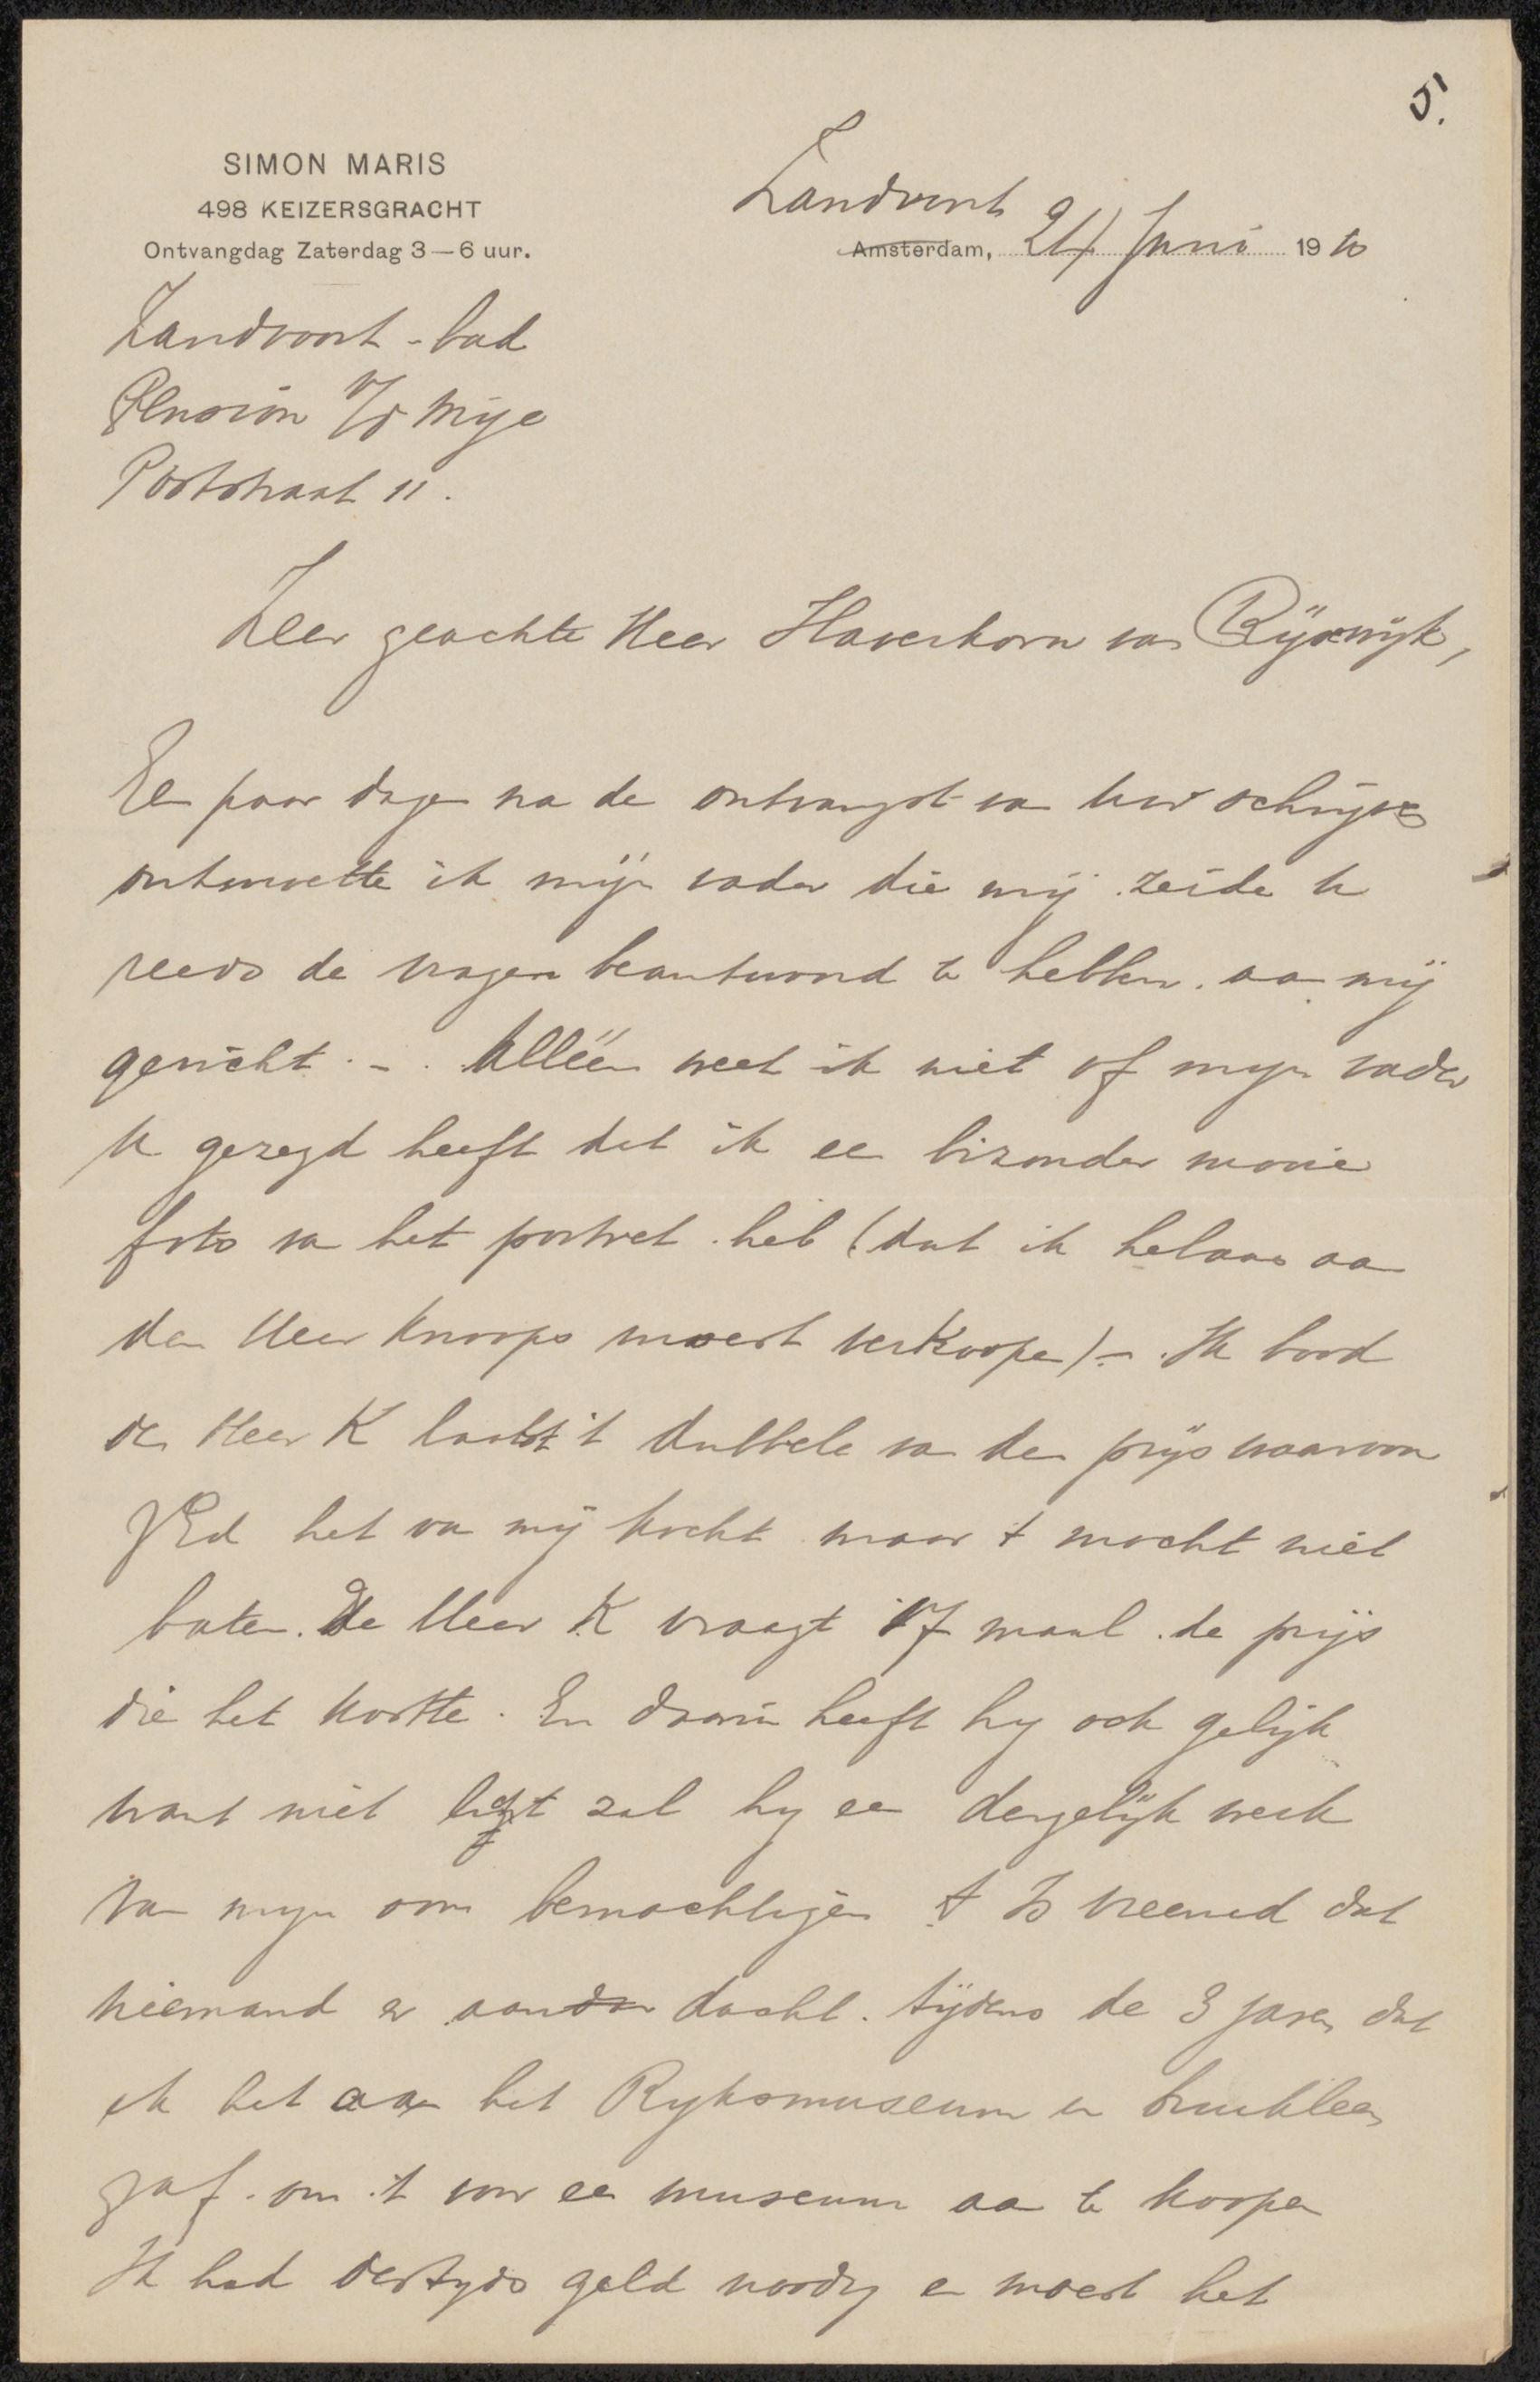 5.
SIMON MARIS
498 KEIZERSGRACHT
Ontvangdag Zaterdag 3—6 uur.
Zandvoort
Amsterdam, 24 Juni 1910
Zandvoort - bad
Pension v/d Mije
Poststraat 11.
Zeer geachte Heer Haverkorn van Rijswijk,
Een paar dagen na de ontvangst van uw schrijven
ontmoette ik mijn vader die mij zeide u
reeds de vragen beantwoord te hebben. aan mij
gericht. -. Alleen weet ik niet of mijn vader
u gezegd heeft dat ik een bizonder mooie
foto van het portret heb (dat ik helaas aan
den Heer Knoops moest verkoopen) -. Ik bood
den Heer K laatst 't dubbele van den prijs waarvoor
ZEd het van mij kocht maar 't mocht niet
baten. De Heer K vraagt 7 maal de prijs
die het kostte. En daarin heeft hij ook gelijk
want niet licht zal hij een dergelijk werk
van mijn oom bemachtigen 't Is vreemd dat
niemand er aan dacht. tijdens de 3 jaren dat
ik het aan het Ryksmuseum in bruikleen
gaf. om 't voor een museum aan te koopen
Ik had destyds geld noodig en moest het